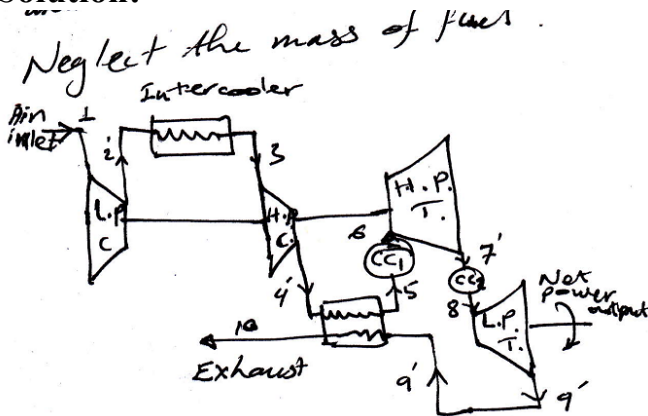 Solution:
Neglect the mass of fuel.
Intercooler
Air inlet
1
2'
3
L.P. C
H.P. C.
H.P. T.
6
CC1
7'
CC2
4'
5
8
L.P. T.
Net power output
10
Exhaust
9'
9'